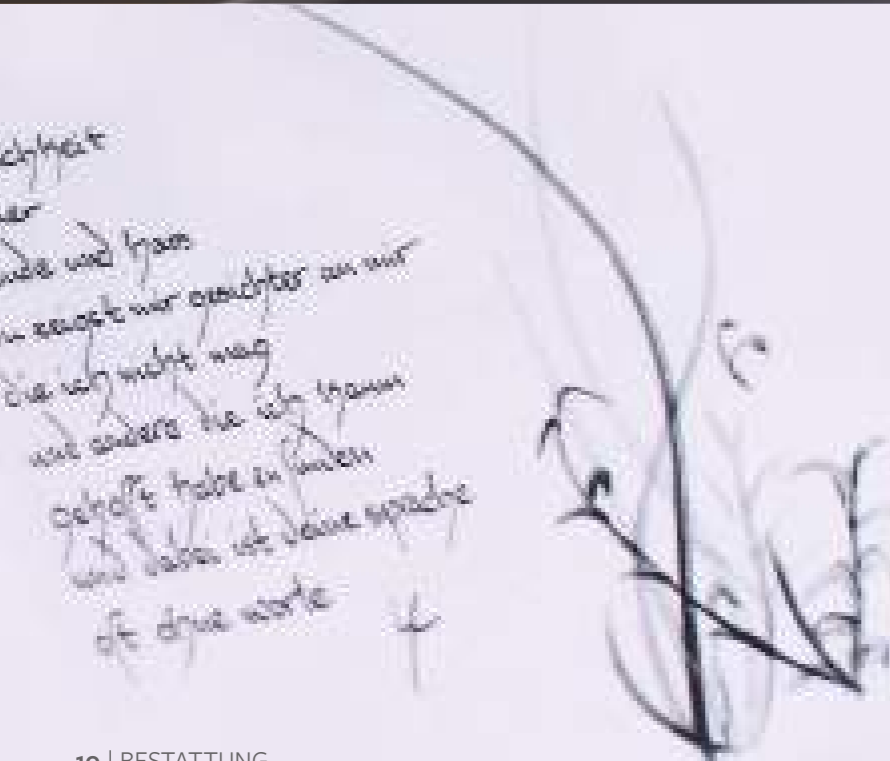 chkeit
er
und
du zeigst mir gesichter an mir
die ich nicht mag
und andere die ich kaum
gehofft habe zu finden
und dabei ist deine sprache
oft ohne worte
19 | BESTATTUNG